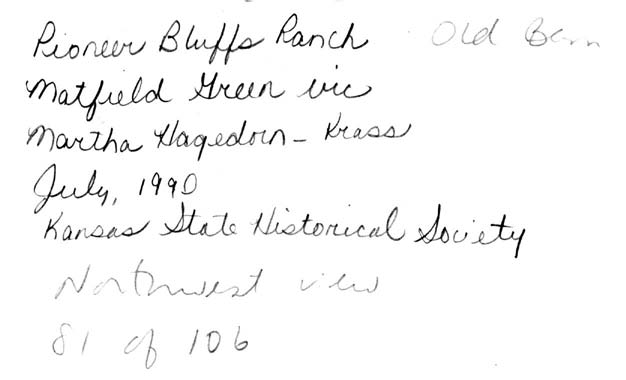 Pioneer Bluffs Ranch Old Barn
Matfield Green vic
Martha Hagedorn-Krass
July, 1990
Kansas State Historical Society
Northwest view
81 of 106